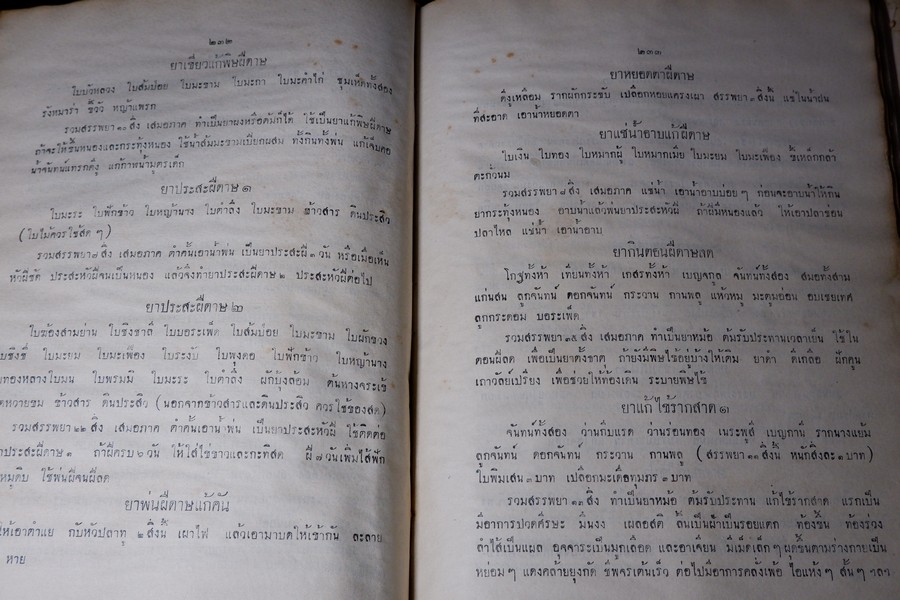 ๒๓๒
ยาเขียวแก้พิษฝีดาษ
ใบบัวหลวง ใบส้มป่อย ใบมะขาม ใบมะกา ใบมะคำไก่ ชุมเห็ดทั้งสอง
รังหมาร่า ขี้วัว หญ้าแพรก
รวมสรรพยา ๑๐ สิ่ง เสมอภาค ทำเป็นยาผงหรือต้มก็ได้ ใช้เป็นยาแก้พิษฝีดาษ
ถ้าจะให้ขึ้นหนองและกระทุ้งหนอง ใช้น้ำส้มมะขามเปียกผสม ทั้งกินทั้งพ่น แก้เจ็บคอ
น้ำจันทน์แทรกดีงู แก้ก้าฬน้ำมูตรเด็ก
ยาประสะฝีดาษ ๑
ใบมะระ ใบฟักข้าว ใบหญ้านาง ใบตำลึง ใบมะขาม ข้าวสาร ดินประสิว
(ใบไม้ควรใช้สด ๆ)
รวมสรรพยา ๗ สิ่ง เสมอภาค ตำคั้นเอาน้ำพ่น เป็นยาประสะฝี ๓ วัน หรือเมื่อเห็น
หัวฝีชัด ประสะหัวฝีจนเป็นหนอง แล้วจึงทำยาประสะฝีดาษ ๒ ประสะหัวฝีต่อไป
ยาประสะฝีดาษ ๒
ใบฆ้องสามย่าน ใบชิงชาลี ใบบอระเพ็ด ใบส้มป่อย ใบมะขาม ใบผักขวง
ใบชิงชี่ ใบมะยม ใบมะเฟือง ใบระงับ ใบพุงดอ ใบฟักข้าว ใบหญ้านาง
ทองหลางใบมน ใบพรมมิ ใบมะระ ใบตำลึง ผักบุ้งล้อม ต้นหางจระเข้
หวายขม ข้าวสาร ดินประสิว (นอกจากข้าวสารและดินประสิว ควรใช้ของสด)
รวมสรรพยา ๒๒ สิ่ง เสมอภาค ตำคั้นเอาน้ำพ่น เป็นยาประสะหัวฝี ใช้ติดต่อ
ยาประสะฝีดาษ ๑ ถ้าฝีครบ ๖ วัน ให้ใส่ไข่ขาวและกะทิสด ฝี ๗ วันเพิ่มไส้ฟัก
หมูดิบ ใช้พ่นฝีจนฝีลด
ยาพ่นฝีดาษแก้คัน
ให้เอาตำแย กับหัวปลาทู ๒ สิ่งนี้ เผาไฟ แล้วเอามาบดให้เข้ากัน ละลาย
หาย
๒๓๓
ยาหยอดตาฝีดาษ
ดีงูเหลือม รากผักกระชับ เปลือกหอยแครงเผา สรรพยา ๓ สิ่งนี้ แช่ในน้ำฝน
ที่สะอาด เอาน้ำหยอดตา
ยาแช่น้ำอาบแก้ฝีดาษ
ใบเงิน ใบทอง ใบหมากผู้ ใบหมากเมีย ใบมะยม ใบมะเฟือง ขี้เหล็กกล้า
ตะกั่วนม
รวมสรรพยา ๘ สิ่ง เสมอภาค แช่น้ำ เอาน้ำอาบบ่อย ๆ ก่อนจะอาบน้ำให้กิน
ยากระทุ้งหนอง อาบน้ำแล้วพ่นยาประสะหัวฝี ถ้าฝีมีหนองแล้ว ให้เอาปลาช่อน
ปลาไหล แช่น้ำ เอาน้ำอาบ
ยากินตอนฝีดาษลด
โกฐทั้งห้า เทียนทั้งห้า เกสรทั้งห้า เบญจกูล จันทน์ทั้งสอง สมอทั้งสาม
แก่นสน ลูกจันทน์ ดอกจันทน์ กระวาน กานพลู แห้วหมู มะตูมอ่อน อบเชยเทศ
ลูกกระดอม บอระเพ็ด
รวมสรรพยา ๓๕ สิ่ง เสมอภาค ทำเป็นยาหม้อ ต้มรับประทานเวลาเย็น ใช้ใน
ตอนฝีลด เพื่อเป็นยาตั้งธาตุ ถ้ายังมีพิษไข้อยู่บ้างให้เติม ยาดำ ดีเกลือ ฝักคูน
เถาวัลย์เปรียง เพื่อช่วยให้ท้องเดิน ระบายพิษไข้
ยาแก้ไข้รากสาด ๑
จันทน์ทั้งสอง ว่านกีบแรด ว่านร่อนทอง เนระพูสี เบญกานี รากนางแย้ม
ลูกจันทน์ ดอกจันทน์ กระวาน กานพลู (สรรพยา ๑๑ สิ่งนี้ หนักสิ่งละ ๑ บาท)
ใบพิมเสน ๓ บาท เปลือกมะเดื่อทุมพร ๓ บาท
รวมสรรพยา ๑๓ สิ่ง ทำเป็นยาหม้อ ต้มรับประทาน แก้ไข้รากสาด แรกเป็น
มีอาการปวดศีรษะ มึนงง เผลอสติ ลิ้นเป็นฝ้าเป็นรอยแตก ท้องขึ้น ท้องร่วง
ลำไส้เป็นแผล อุจจาระเป็นมูกเลือด และอาเจียน มีเม็ดเล็ก ๆ ผุดขึ้นตามร่างกายเป็น
หย่อม ๆ แดงคล้ายยุงกัด ชีพจรเต้นเร็ว ต่อไปมีอาการคลั่งเพ้อ ไอแห้ง ๆ สั้น ๆ